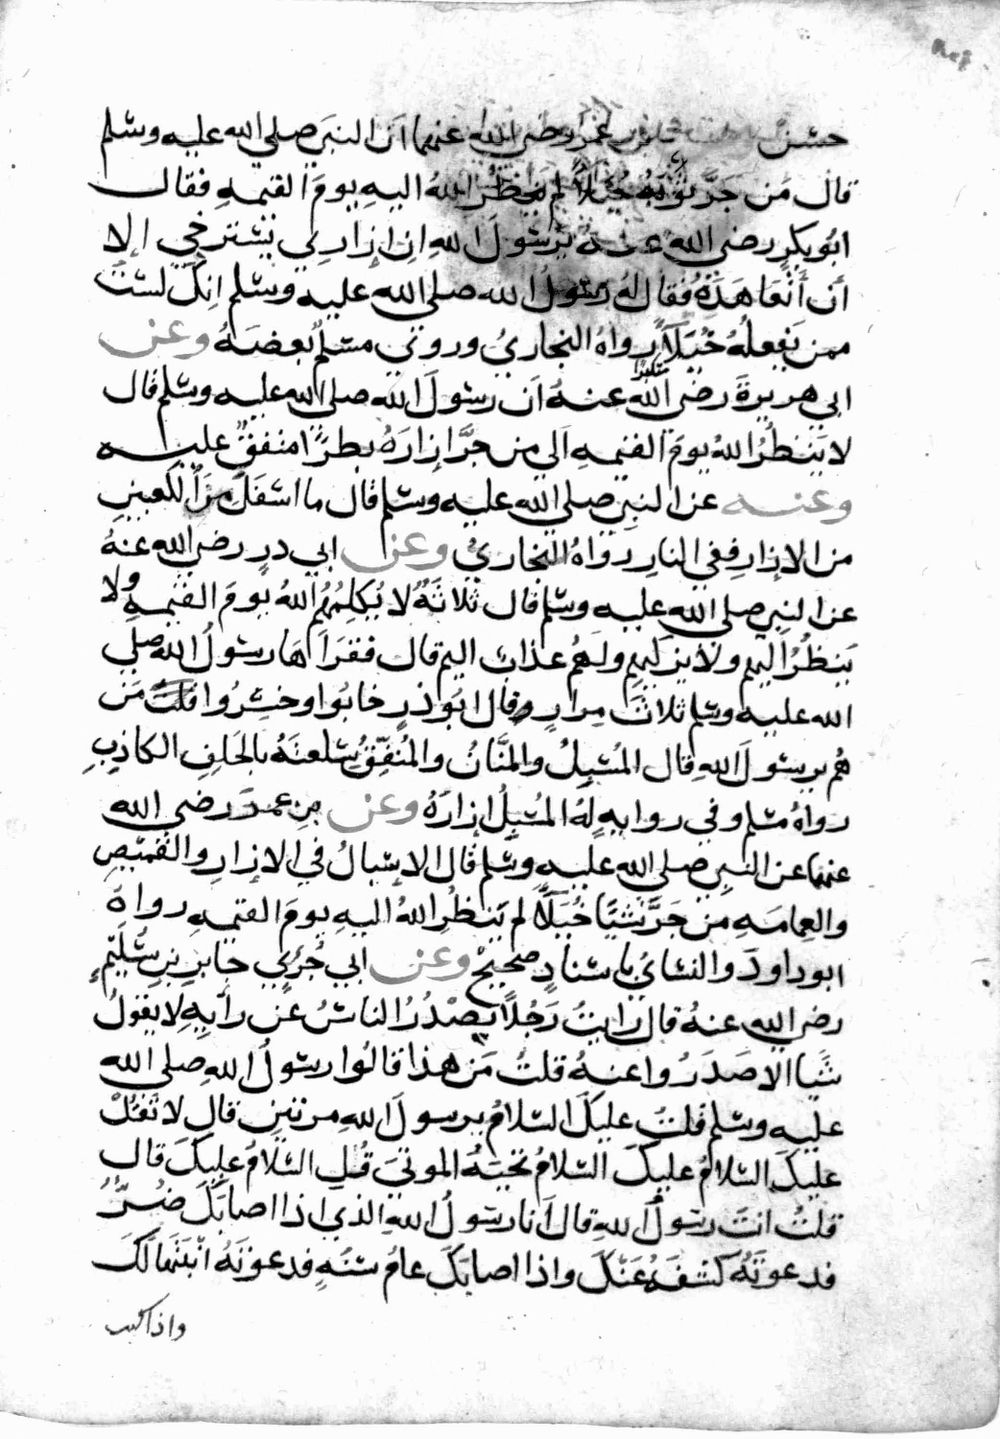 حسن وعن بن عمر رضي الله عنهما ان النبي صلى الله عليه وسلم
قال من جر ثوبه خيلاً لم ينظر الله اليه يوم القيمه فقال
ابو بكر رضي الله عنه يرسول الله ان ازاري يسترخي إلا
أن أتعاهده فقال له رسول الله صلى الله عليه وسلم انك لست
ممن يفعله خيلاً رواه البخاري وروى مسلم بعضه وعن
متكبرا
ابي هريرة رضي الله عنه ان رسول الله صلى الله عليه وسلم قال
لا ينظر الله يوم القيمه الى من جر إزاره بطرًا متفق عليه
وعنه عن النبي صلى الله عليه وسلم قال ما اسفل من الكعبين
من الازار ففي النار رواه البخاري وعن ابي در رضي الله عنه
عن النبي صلى الله عليه وسلم قال ثلاثة لا يكلمهم الله يوم القيمه ولا
ينظر اليهم ولا يزكيهم ولهم عذاب اليم قال فقرأها رسول الله صلى
الله عليه وسلم ثلاث مرار وقال ابو ذر خابوا وخسروا قلت من
هم يرسول الله قال المسبل والمنان والمنفق سلعته بالحلف الكاذب
رواه مسلم وفي روايه له المسبل إزاره وعن بن عمر رضي الله
عنهما عن النبي صلى الله عليه وسلم قال الاسبال في الازار والقميص
والعمامه من جر شيًا خيلاً لم ينظر الله اليه يوم القيمه رواه
ابو داود والنسائ باسناد صحيح وعن ابي جري جابر بن سليم
رضي الله عنه قال رايت رجلاً يصدر الناس عن رآيه لا يقول
شيا الا صدروا عنه قلت من هذا قالوا رسول الله صلى الله
عليه وسلم قلت عليك السلام يرسول الله مرتين قال لا تقل
عليك السلام عليك السلام تحية الموتى قل السلام عليك قال
قلت انت رسول الله قال أنا رسول الله الذي اذا اصابك ضر
فدعوته كشفه عنك واذا اصابك عام سنه فدعوته انبتها لك
واذا كنت